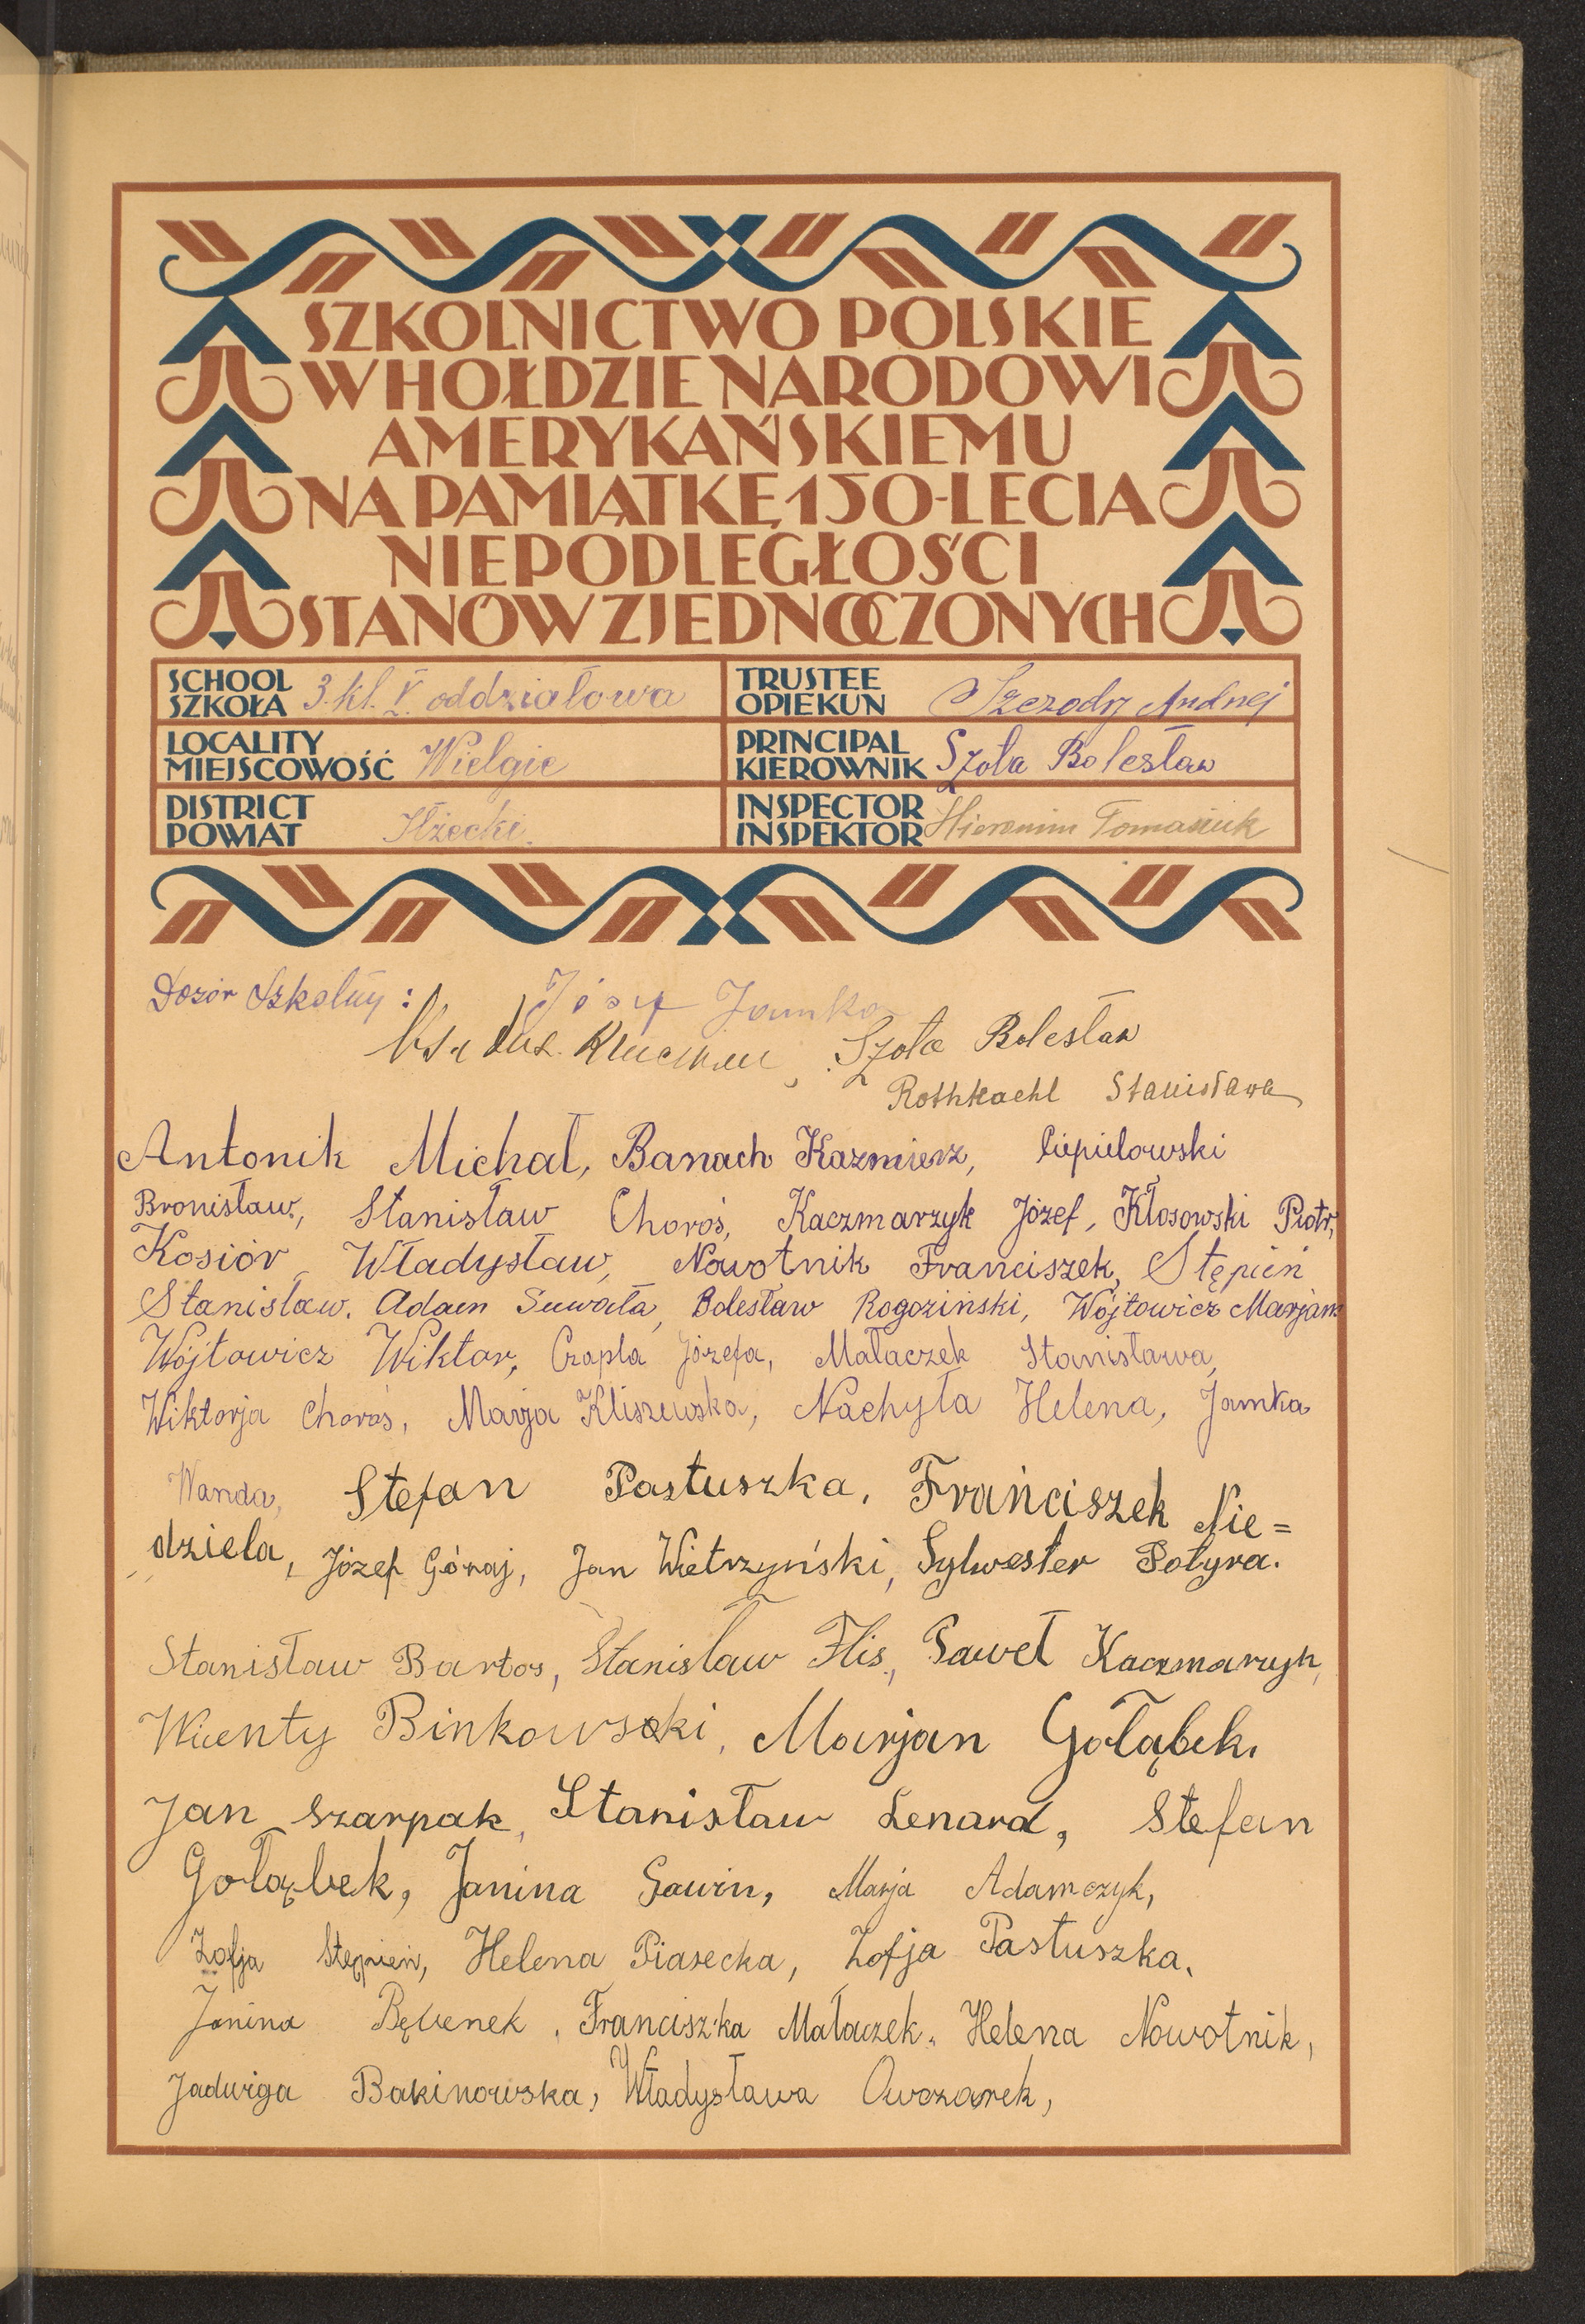 SZKOLNICTWO POLSKIE
W HOŁDZIE NARODOWI
AMERYKAŃSKIEMU
NA PAMIĄTKĘ 150-LECIA
NIEPODLEGŁOŚCI
STANÓW ZJEDNOCZONYCH
SCHOOL
SZKOŁA 3. kl. V. oddziałowa
TRUSTEE
OPIEKUN Szczodry Andrzej
LOCALITY
MIEJSCOWOŚĆ Wielgie
PRINCIPAL
KIEROWNIK Szoła Bolesław
DISTRICT
POWIAT Iłżecki.
INSPECTOR
INSPEKTOR Hieronim Tomasiuk
Dozór Szkolny: Józef Jamka
Szoła Bolesław
Rothkaehl Stanisława
Antonik Michał, Banach Kazmierz, Ciepielowski
Bronisław, Stanisław Choroś, Kaczmarzyk Józef, Kłosowski Piotr,
Kosiór Władysław, Nowotnik Franciszek, Stępień
Stanisław. Adam Suwała, Bolesław Rogoziński, Wójtowicz Marjam
Wójtowicz Wiktor, Czapla Józefa, Małaczek Stanisława,
Wiktorja Choroś, Marja Kliszewska, Nachyła Helena, Jamka
Wanda, Stefan Pastuszka, Frańciszek Nie=
dziela, Józef Góraj, Jan Wietrzyński, Sylwester Potyra.
Stanisław Bartos, Stanisław Flis, Paweł Kaczmarzyk,
Wicenty Binkowski, Marjan Gołąbek.
Jan Szarpak, Stanisław Lenard, Stefan
Gołąbek, Janina Gawin, Marja Adamczyk,
Zofja Stępień, Helena Piasecka, Zofja Pastuszka.
Janina Bębenek, Franciszka Małaczek. Helena Nowotnik,
Jadwiga Bakinowska, Władysława Owczarek,